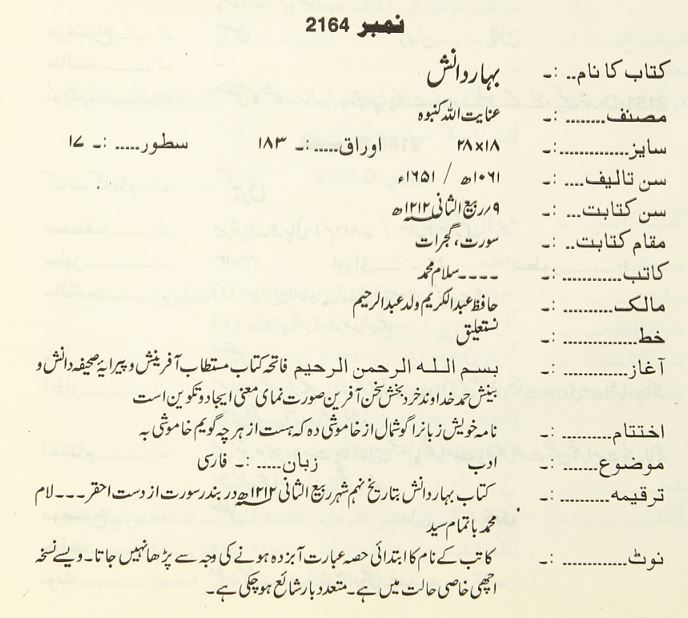 نمبر 2164
کتاب کا نام.. :۔ بہار دانش
مصنف........ :۔ عنایت اللہ کنبوہ
سایز............ :۔ ۲۸x۱۸ اوراق.....:۔ ۱۸۳ سطور.....:۔ ۱۷
سن تالیف.... :۔ ۱۰۶۱ھ / ۱۶۵۱ء
سن کتابت... :۔ ۹؍ربیع الثانی ۱۲۱۲ھ
مقام کتابت.. :۔ سورت، گجرات
کاتب........... :۔ ۔۔۔۔سلام محمد
مالک........... :۔ حافظ عبدالکریم ولد عبدالرحیم
خط.............. :۔ نستعلیق
آغاز............ :۔ بسم اللہ الرحمن الرحیم فاتحہ کتاب مستطاب آفرینش و پیرایۂ صحیفہ دانش و
بینش حمد خداوند خرد بخش سخن آفرین صورت نمای معنی ایجاد و تکوین است
اختتام........... :۔ نامہ خویش زبانرا گوشمال از خاموشی دہ کہ ہست از ہر چہ گویم خاموشی بہ
موضوع........ :۔ ادب زبان.....:۔ فارسی
ترقیمہ........... :۔ کتاب بہار دانش بتاریخ نہم شہر ربیع الثانی ۱۲۱۲ھ در بندر سورت از دست احقر۔۔۔لام
محمد باتمام سید
نوٹ............. :۔ کاتب کے نام کا ابتدائی حصہ عبارت آبزدہ ہونے کی وجہ سے پڑھا نہیں جاتا۔ ویسے نسخہ
اچھی خاصی حالت میں ہے۔ متعدد بار شائع ہو چکی ہے۔